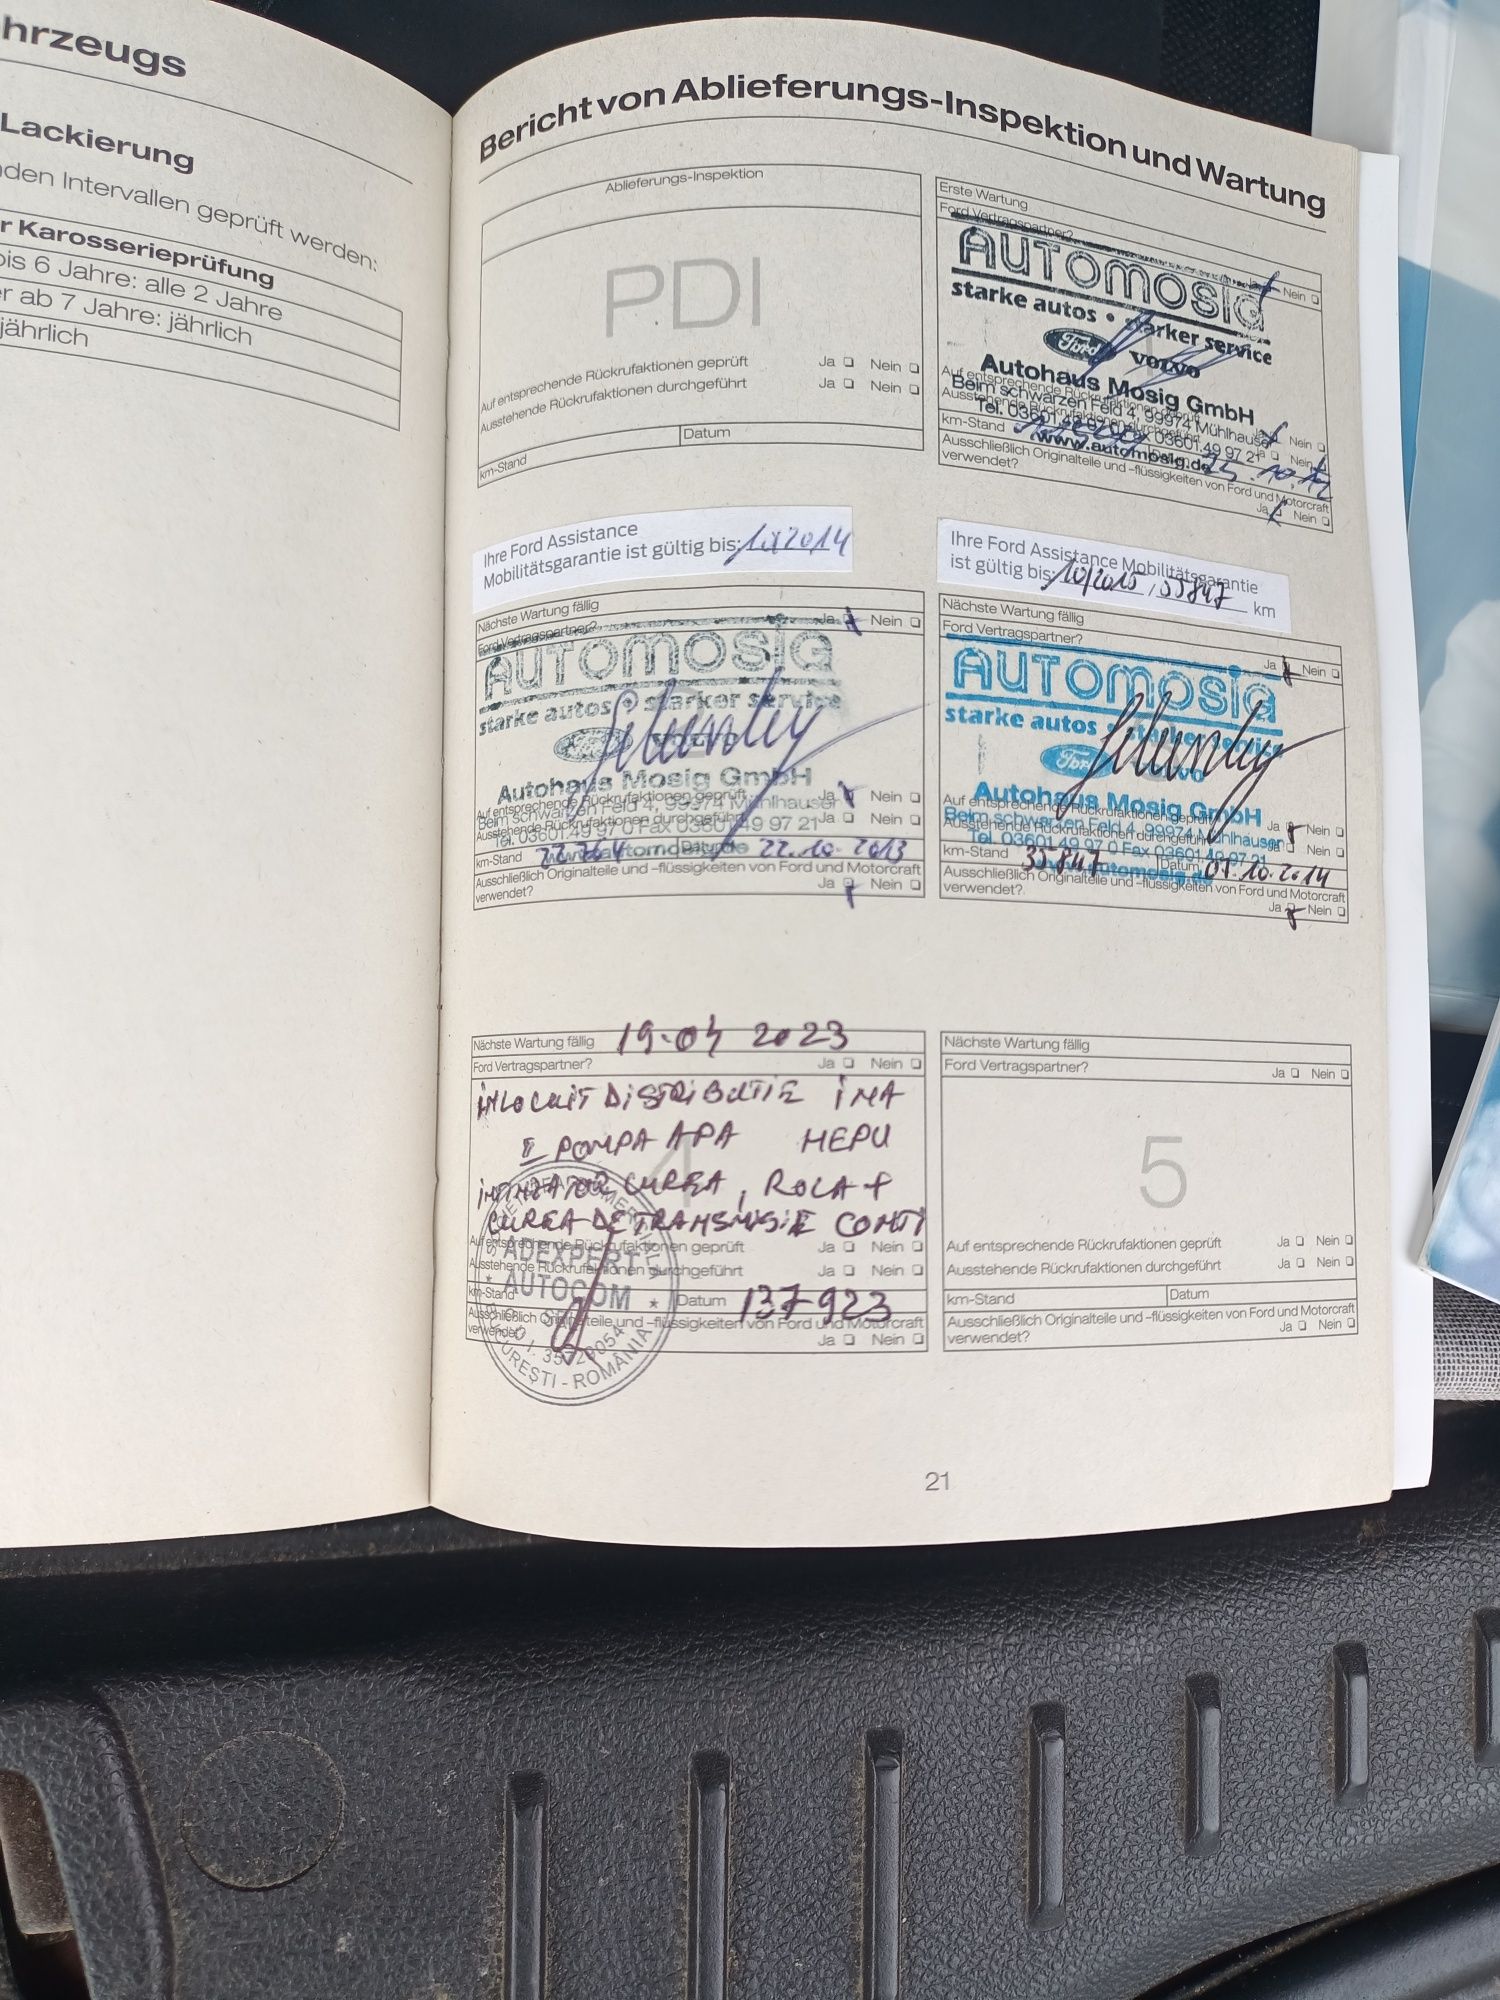 hrzeugs
Lackierung
nden Intervallen geprüft werden:
r Karosserieprüfung
bis 6 Jahre: alle 2 Jahre
er ab 7 Jahre: jährlich
jährlich
Bericht von Ablieferungs-Inspektion und Wartung
Ablieferungs-Inspektion
PDI
Auf entsprechende Rückrufaktionen geprüft Ja Nein
Ausstehende Rückrufaktionen durchgeführt Ja Nein
km-Stand Datum
Erste Wartung
Ford Vertragspartner? Ja Nein
AUTOMOSIG
starke autos • starker service
Ford VOLVO
Autohaus Mosig GmbH
Auf entsprechende Rückrufaktionen geprüft Ja Nein
Beim schwarzen Feld 4, 99974 Mühlhausen
Ausstehende Rückrufaktionen durchgeführt Ja Nein
Tel. 03601.49 97 0 Fax 03601.49 97 21
km-Stand Datum 25.10.12
www.automosig.de
Ausschließlich Originalteile und -flüssigkeiten von Ford und Motorcraft
verwendet? Ja Nein
Ihre Ford Assistance
Mobilitätsgarantie ist gültig bis: 10/2014
Nächste Wartung fällig
Ford Vertragspartner? Ja Nein
AUTOMOSIG
starke autos • starker service
Ford VOLVO
Autohaus Mosig GmbH
Auf entsprechende Rückrufaktionen geprüft Ja Nein
Beim schwarzen Feld 4, 99974 Mühlhausen
Ausstehende Rückrufaktionen durchgeführt Ja Nein
Tel. 03601.49 97 0 Fax 03601.49 97 21
km-Stand 22.764 Datum 22.10.2013
www.automosig.de
Ausschließlich Originalteile und -flüssigkeiten von Ford und Motorcraft
verwendet? Ja Nein
Ihre Ford Assistance Mobilitätsgarantie
ist gültig bis: 10/2015, 35847 km
Nächste Wartung fällig
Ford Vertragspartner? Ja Nein
AUTOMOSIG
starke autos • starker service
Ford VOLVO
Autohaus Mosig GmbH
Auf entsprechende Rückrufaktionen geprüft Ja Nein
Beim schwarzen Feld 4, 99974 Mühlhausen
Ausstehende Rückrufaktionen durchgeführt Ja Nein
Tel. 03601.49 97 0 Fax 03601.49 97 21
km-Stand 35847 Datum 07.10.2014
www.automosig.de
Ausschließlich Originalteile und -flüssigkeiten von Ford und Motorcraft
verwendet? Ja Nein
Nächste Wartung fällig 19.04 2023
Ford Vertragspartner? Ja Nein
4
INLOCUIT DISTRIBUTIE INA
POMPA APA HEPU
CUREA, ROLA +
CUREA DE TRANSMISIE CONTI
Auf entsprechende Rückrufaktionen geprüft Ja Nein
Ausstehende Rückrufaktionen durchgeführt Ja Nein
ADEXPERT
AUTOCOM
BUCUREȘTI - ROMÂNIA
km-Stand Datum 137923
Ausschließlich Originalteile und -flüssigkeiten von Ford und Motorcraft
verwendet? Ja Nein
Nächste Wartung fällig
Ford Vertragspartner? Ja Nein
5
Auf entsprechende Rückrufaktionen geprüft Ja Nein
Ausstehende Rückrufaktionen durchgeführt Ja Nein
km-Stand Datum
Ausschließlich Originalteile und -flüssigkeiten von Ford und Motorcraft
verwendet? Ja Nein
21